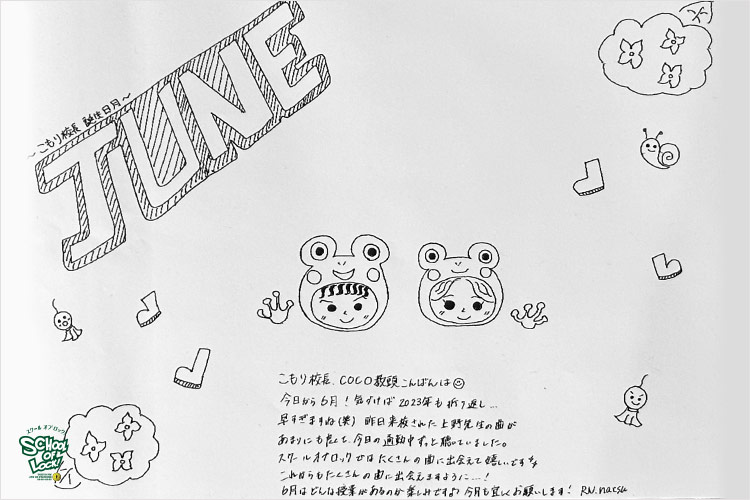 ～こもり校長 誕生日月～
JUNE
こもり校長、COCO教頭こんばんは
今日から6月！気づけば2023年も折り返し…
早すぎますね(笑) 昨日来校された上野先生の曲が
あまりにも良くて、今日の通勤中ずっと聴いていました。
スクールオブロックではたくさんの曲に出会えて嬉しいです
これからもたくさんの曲に出会えますように…！
6月はどんな授業があるのか楽しみです♪今月も宜しくお願いします！ RN.nacsu
スクール オブ ロック
SCHOOL OF LOCK!